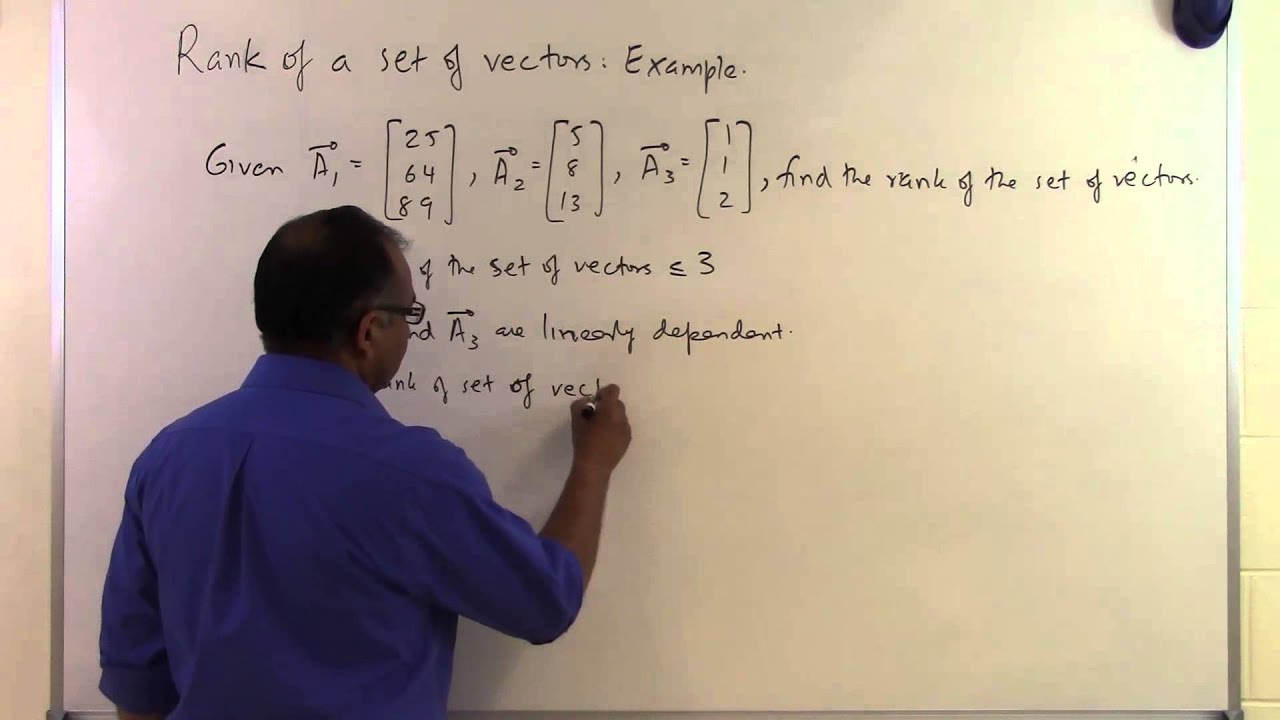 Rank of a set of vectors: Example.
Given A⃗₁ = [25 64 89], A⃗₂ = [5 8 13], A⃗₃ = [1 1 2], find the rank of the set of vectors.
of the set of vectors ≤ 3
A⃗₃ are linearly dependent.
of set of